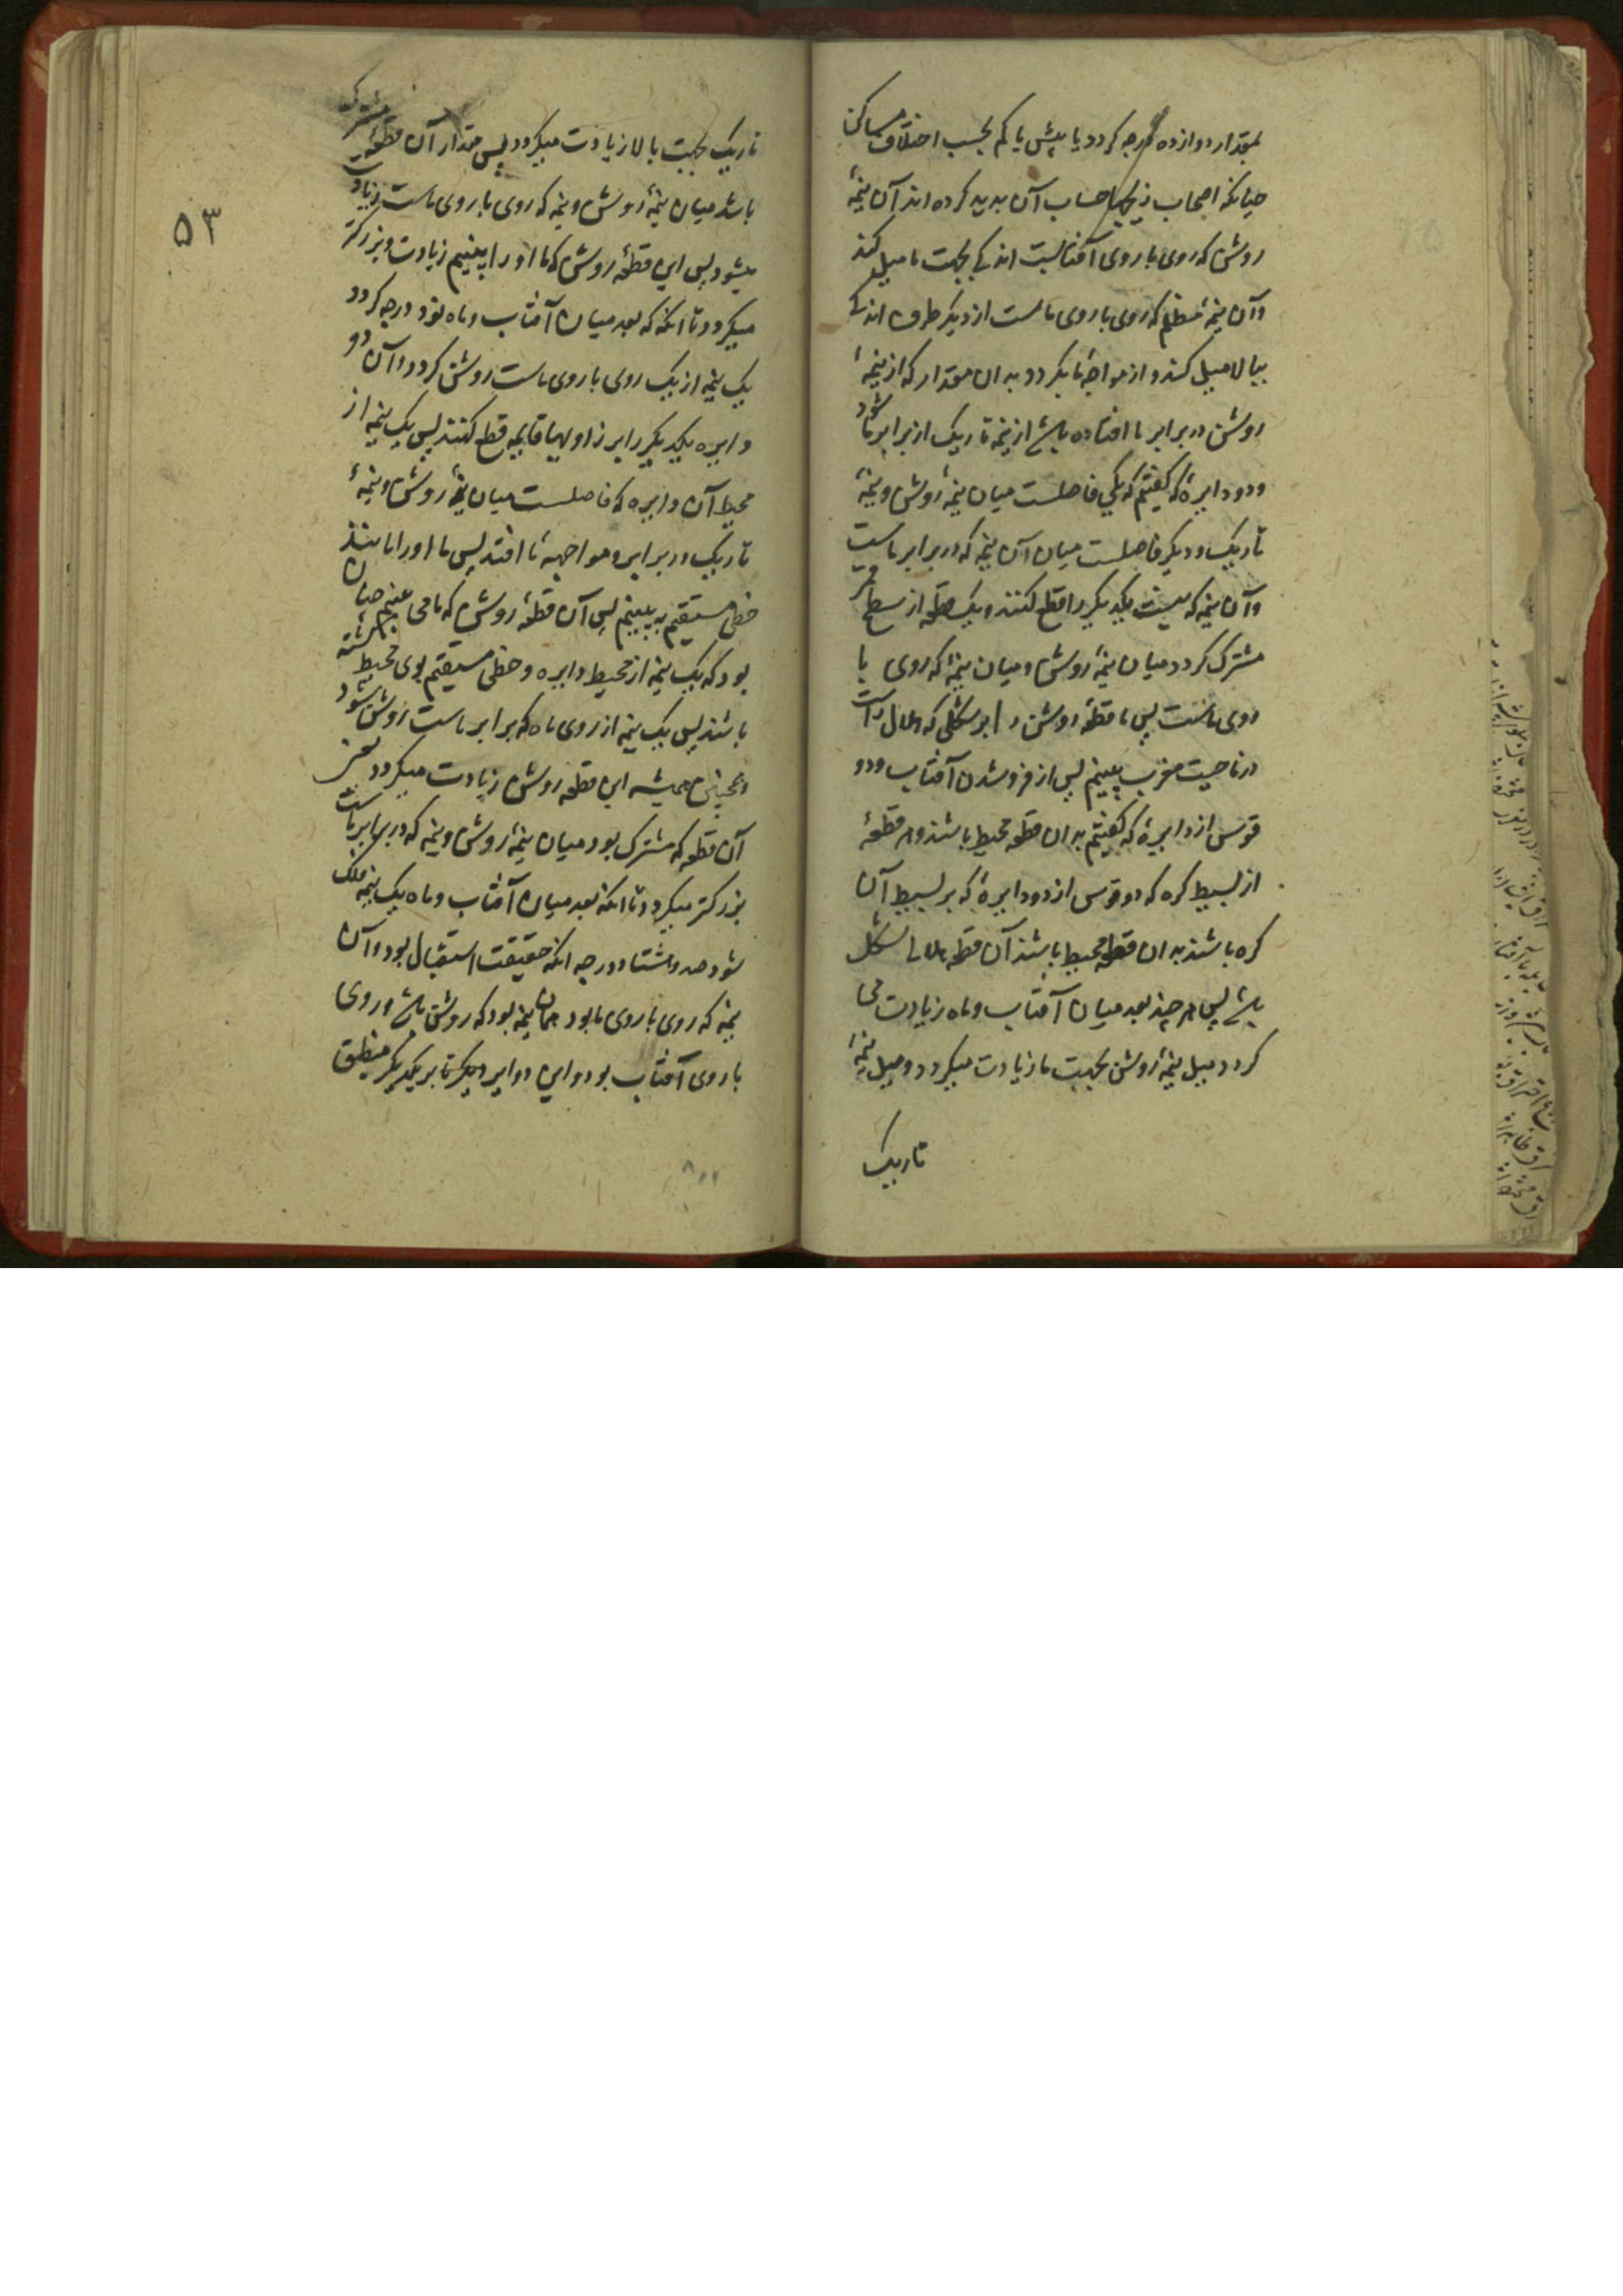 بمقدار دوازده درجه کردد یا بیش یا کم بحسب اختلاف مساکن
چنانکه اصحاب زیجها حساب آن بدید کرده اند آن نیمهٔ
روشن که روی با روی آفتابست اندکی بجهت ما میل کند
وآن نیمهٔ مظلم که روی با روی ماست از دیکر طرف اندکی
ببالا میل کند و از مواجهٔ ما بکردد بدان مقدار که از نیمهٔ
روشن در برابر ما افتاده باشد از نیمه تاریک از برابر ما شود
ودو دایرهٔ که کفتیم که یکی فاصلست میان نیمهٔ روشن ونیمهٔ
تاریک ودیکر فاصلست میان آن نیمه که در برابر ماست
وآن نیمه که نیست یکدیکر را قطع کنند ویک قطعه از سطح قمر
مشترک کردد میان نیمهٔ روشن ومیان نیمهٔ که روی با
روی ماست پس ما قطعهٔ روشن را بر شکلی که هلال راست
در ناحیت مغرب بینیم پس از فرو شدن آفتاب ودو
قوس از دایرهٔ که کفتیم بدان قطعه محیط باشند وهر قطعهٔ
از بسیط کره که دو قوس از دو دایرهٔ که بر بسیط آن
کره باشند بدان قطعه محیط باشند آن قطعه هلالی شکل
باشد پس هر چند بعد میان آفتاب وماه زیادت می
کردد میل نیمهٔ روشن بجهت ما زیادت میکردد ومیل نیمهٔ
تاریک
۵۳
تاریک بجهت بالا زیادت میکردد پس مقدار آن قطعه که مشترک
باشد میان نیمهٔ روشن ونیمه که روی با روی ماست زیادت
میشود پس این قطعهٔ روشن که ما او را بینیم زیادت وبزرکتر
میکردد تا انکه که بعد میان آفتاب وماه نود درجه کردد
یک نیمه از یک روی با روی ماست روشن کردد وآن دو
دایره یکدیکر را بر زاویهها قایمه قطع کنند پس یک نیمه از
محیط آن دایره که فاصلست میان نیمهٔ روشن ونیمهٔ
تاریک در برابر ومواجههٔ ما افتد پس ما او را مانند
خطی مستقیم بینیم پس آن قطعهٔ روشن که ما می بینیم چنان
بود که یک نیمه از محیط دایره وخطی مستقیم بوی محیط کشته
باشند پس یک نیمه از روی ماه که برابر ماست روشن شود
وهمچنین همیشه این قطعه روشن زیادت میکردد یعنی
آن قطعه که مشترک بود میان نیمهٔ روشن ونیمه که در برابر ماست
بزرکتر میکردد تا انکه بعد میان آفتاب وماه یک نیمه فلک
شود صد وهشتاد درجه انکه حقیقت استقبال بود وآن
نیمه که روی با روی ما بود همان نیمه بود که روشن باشد وروی
با روی آفتاب بود واین دوایر دیکر تا بر یکدیکر منطبق